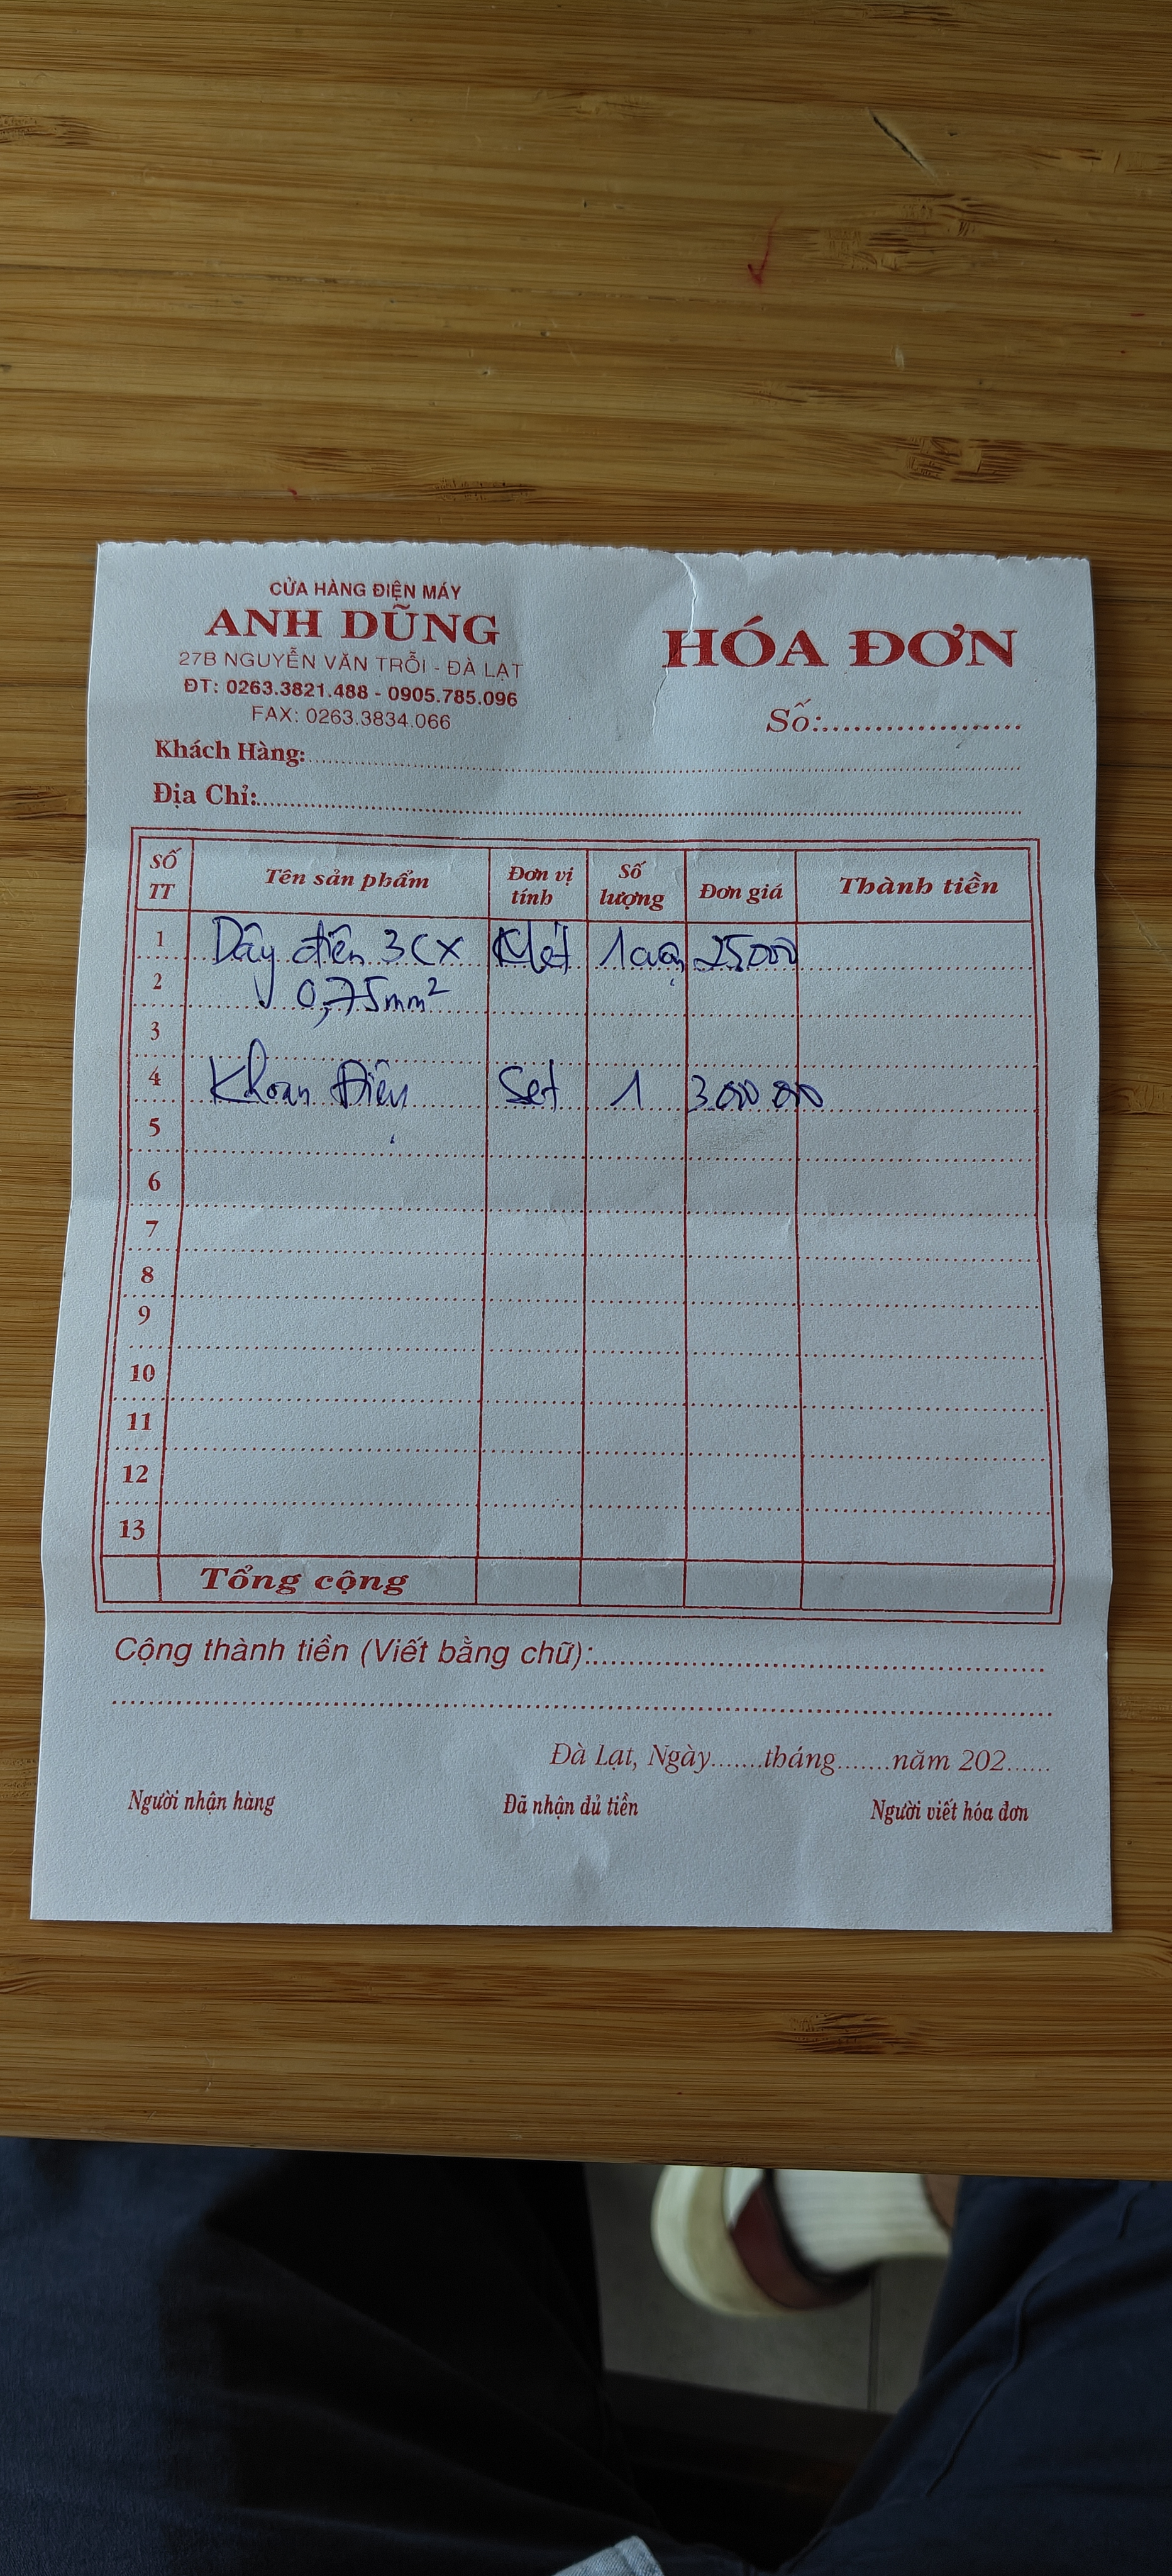 CỬA HÀNG ĐIỆN MÁY
ANH DŨNG
27B NGUYỄN VĂN TRỖI - ĐÀ LẠT
ĐT: 0263.3821.488 - 0905.785.096
FAX: 0263.3834.066
HÓA ĐƠN
Số:...................
Khách Hàng:
Địa Chỉ:
SỐ TT Tên sản phẩm Đơn vị tính Số lượng Đơn giá Thành tiền
1 Dây điện 3CX Mét 1 cuộn 25000
2 0,75mm²
3
4 Khoan Điện Set 1
5
6
7
8
9
10
11
12
13
Tổng cộng
Cộng thành tiền (Viết bằng chữ):
Đà Lạt, Ngày.......tháng.......năm 202......
Người nhận hàng Đã nhận đủ tiền Người viết hóa đơn